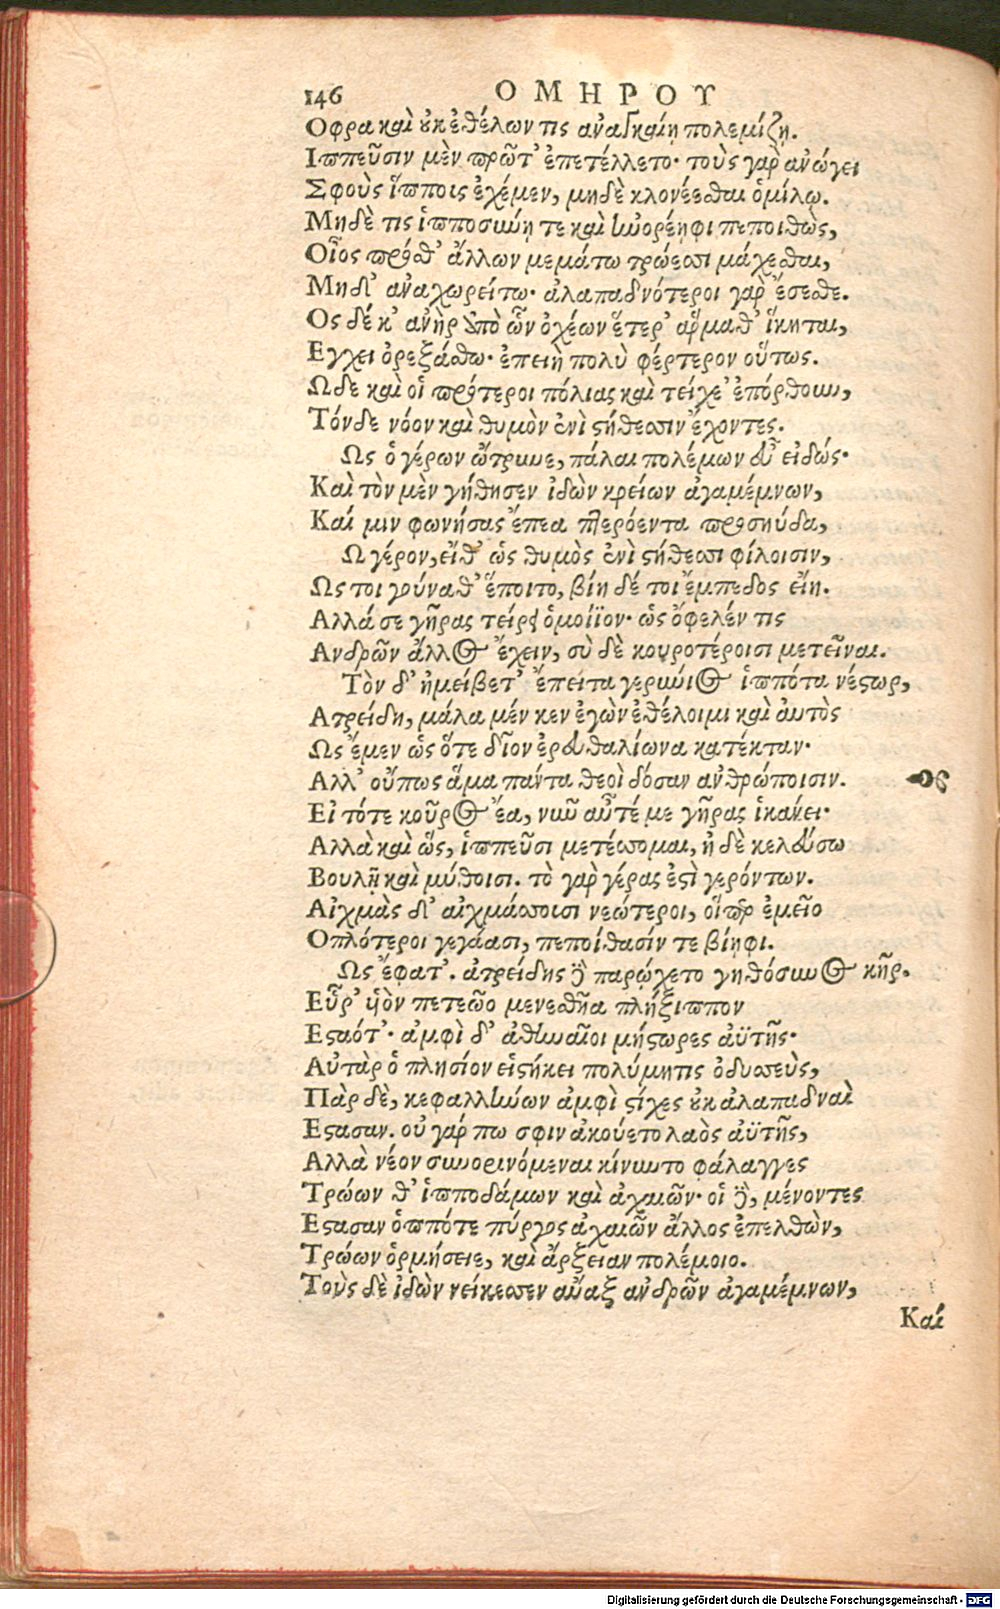 146 ΟΜΗΡΟΥ
Οφρα καὶ ȣκ ἐθέλων τις ἀναγκαίῃ πολεμίζῃ.
Ιππεῦσιν μὲν πρῶτ' ἐπετέλλετο· τοὺς γὰρ ἀνώγει
Σφοὺς ἵπποις ἐχέμεν, μηδὲ κλονέεσθαι ὁμίλῳ.
Μηδὲ τις ἱπποσύνῃ τε καὶ ἠνορέηφι πεποιθὼς,
Οἶος πρόσθ' ἄλλων μεμάτω τρώεσσι μάχεσθαι,
Μηδ' ἀναχωρείτω· ἀλαπαδνότεροι γὰρ ἔσεσθε.
Ος δέ κ' ἀνὴρ ὑπὸ ὧν ὀχέων ἕτερ' ἅρμαθ' ἵκηται,
Εγχει ὀρεξάσθω· ἐπειὴ πολὺ φέρτερον οὕτως.
Ωδε καὶ οἱ πρότεροι πόλιας καὶ τείχε' ἐπόρθουν,
Τόνδε νόον καὶ θυμὸν ἐνὶ ϛήθεσσιν ἔχοντες.
Ως ὁ γέρων ὤτρυνε, πάλαι πολέμων εὖ εἰδώς·
Καὶ τὸν μὲν γήθησεν ἰδὼν κρείων ἀγαμέμνων,
Καί μιν φωνήσας ἔπεα πτερόεντα προσηύδα,
Ω γέρον, εἴθ' ὡς θυμὸς ἐνὶ ϛήθεσσι φίλοισιν,
Ως τοι γούναθ' ἕποιτο, βίη δέ τοι ἔμπεδος εἴη.
Αλλά σε γῆρας τείρει ὁμοίϊον· ὡς ὄφελέν τις
Ανδρῶν ἄλλος ἔχειν, σὺ δὲ κουροτέροισι μετεῖναι.
Τὸν δ' ἠμείβετ' ἔπειτα γερήνιος ἱππότα νέϛωρ,
Ατρείδη, μάλα μέν κεν ἐγὼν ἐθέλοιμι καὶ ἀυτὸς
Ως ἔμεν ὡς ὅτε δῖον ἐρευθαλίωνα κατέκταν·
Αλλ' οὔπως ἅμα παντα θεοὶ δόσαν ἀνθρώποισιν.
Εἰ τότε κοῦρος ἔα, νῦν αὖτέ με γῆρας ἱκάνει·
Αλλὰ καὶ ὣς, ἱππεῦσι μετέσσομαι, ἠδὲ κελεύσω
Βουλῇ καὶ μύθοισι. τὸ γὰρ γέρας ἐϛὶ γερόντων.
Αἰχμὰς δ' αἰχμάσσουσι νεώτεροι, οἵπερ ἐμεῖο
Οπλότεροι γεγάασι, πεποίθασίν τε βίηφι.
Ως ἔφατ'. ἀτρείδης δὲ παρῴχετο γηθόσυνος κῆρ.
Εὗρ' ὑὸν πετεῶο μενεσθῆα πλήξιππον
Εϛαότ'· ἀμφὶ δ' ἀθηναῖοι μήϛωρες ἀϋτῆς·
Αὐτὰρ ὁ πλησίον εἱϛήκει πολύμητις ὀδυσσεὺς,
Πὰρ δὲ, κεφαλλήνων ἀμφὶ ϛίχες ȣκ ἀλαπαδναὶ
Εϛασαν. οὐ γάρ πω σφιν ἀκούετο λαὸς ἀϋτῆς,
Αλλὰ νέον συνορινόμεναι κίνυντο φάλαγγες
Τρώων θ' ἱπποδάμων καὶ ἀχαιῶν· οἱ δὲ, μένοντες
Εϛασαν ὁππότε πύργος ἀχαιῶν ἄλλος ἐπελθὼν,
Τρώων ὁρμήσειε, καὶ ἄρξειαν πολέμοιο.
Τοὺς δὲ ἰδὼν νείκεσσεν ἄναξ ἀνδρῶν ἀγαμέμνων,
Καί
Digitalisierung gefördert durch die Deutsche Forschungsgemeinschaft - DFG